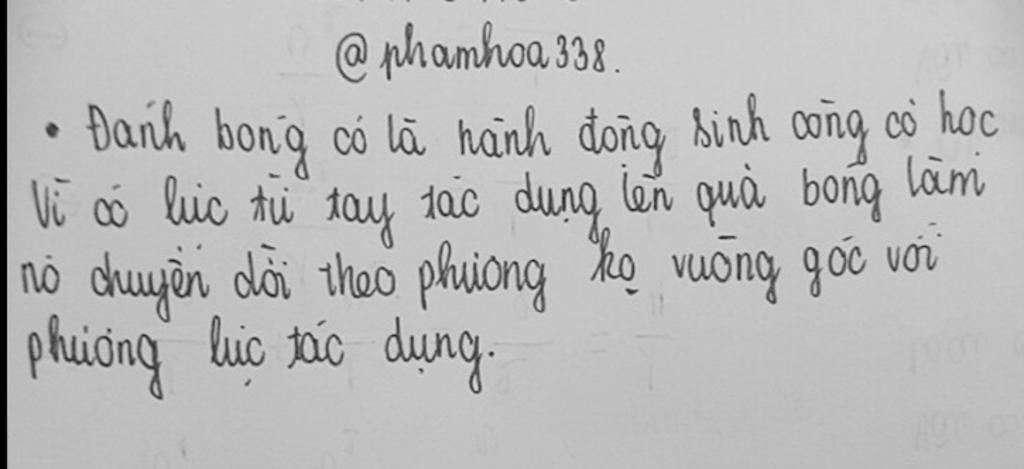 @phamhoa338.
• Đánh bóng có là hành động sinh công cơ học
Vì có lực từ tay tác dụng lên quả bóng làm
nó chuyển dời theo phương ko vuông góc với
phương lực tác dụng.